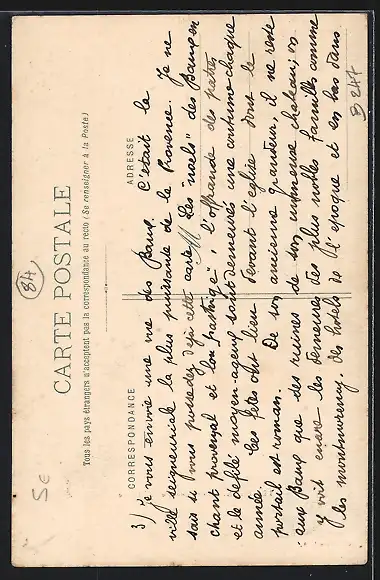 CARTE POSTALE
Tous les pays étrangers n'acceptent pas la correspondance au recto (Se renseigner à la Poste)
CORRESPONDANCE
ADRESSE
3) Je vous envoie une vue des Baux. C'était la
ville seigneuriale la plus puissante de la Provence. Je ne
sais si vous possedez deja cette carte. Les "noels" des Baux en
chant provençal et l'offrande des patres
et le défilé moyen-ageux sont demeurés une coutume chaque
année. Ces fetes ont lieu devant l'eglise dont le
portail est roman. De son ancienne grandeur, il ne reste
aux Baux que des ruines de son immense chateau; on
y voit encore les demeures des plus nobles familles comme
les montmorency, des hotels de l'époque et en bas dans
84
5e
B 247